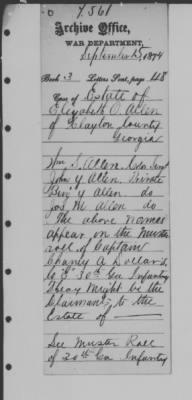 7.561
Archive Office,
WAR DEPARTMENT,
September 25, 1874
Book 3 Letters Sent, page 118
Case of Estate of
Elizabeth O. Allen
of Clayton County
Georgia
Wm S. Allen, Color Sergt
John Y Allen, Private
Ben Y Allen do
Jos. M Allen do
The above names
appear on the Muster
roll of Captain
A Dollars,
Co 30th Ga Infantry
They might be the
Claimants to the
Estate of
See Muster Roll
of 30th Ga Infantry